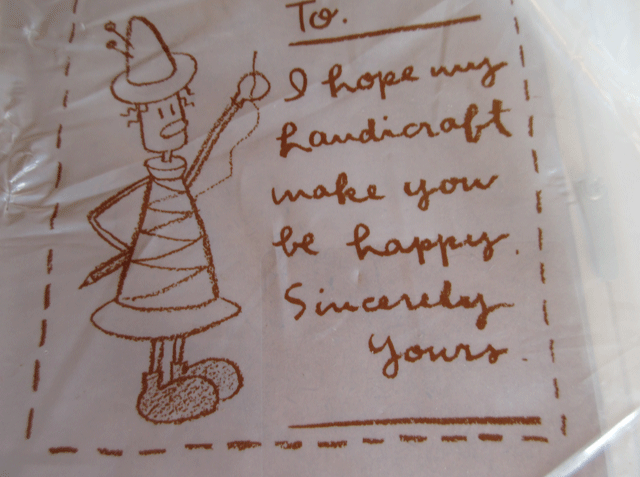 To.
I hope my
handicraft
make you
be happy.
Sincerely
yours.